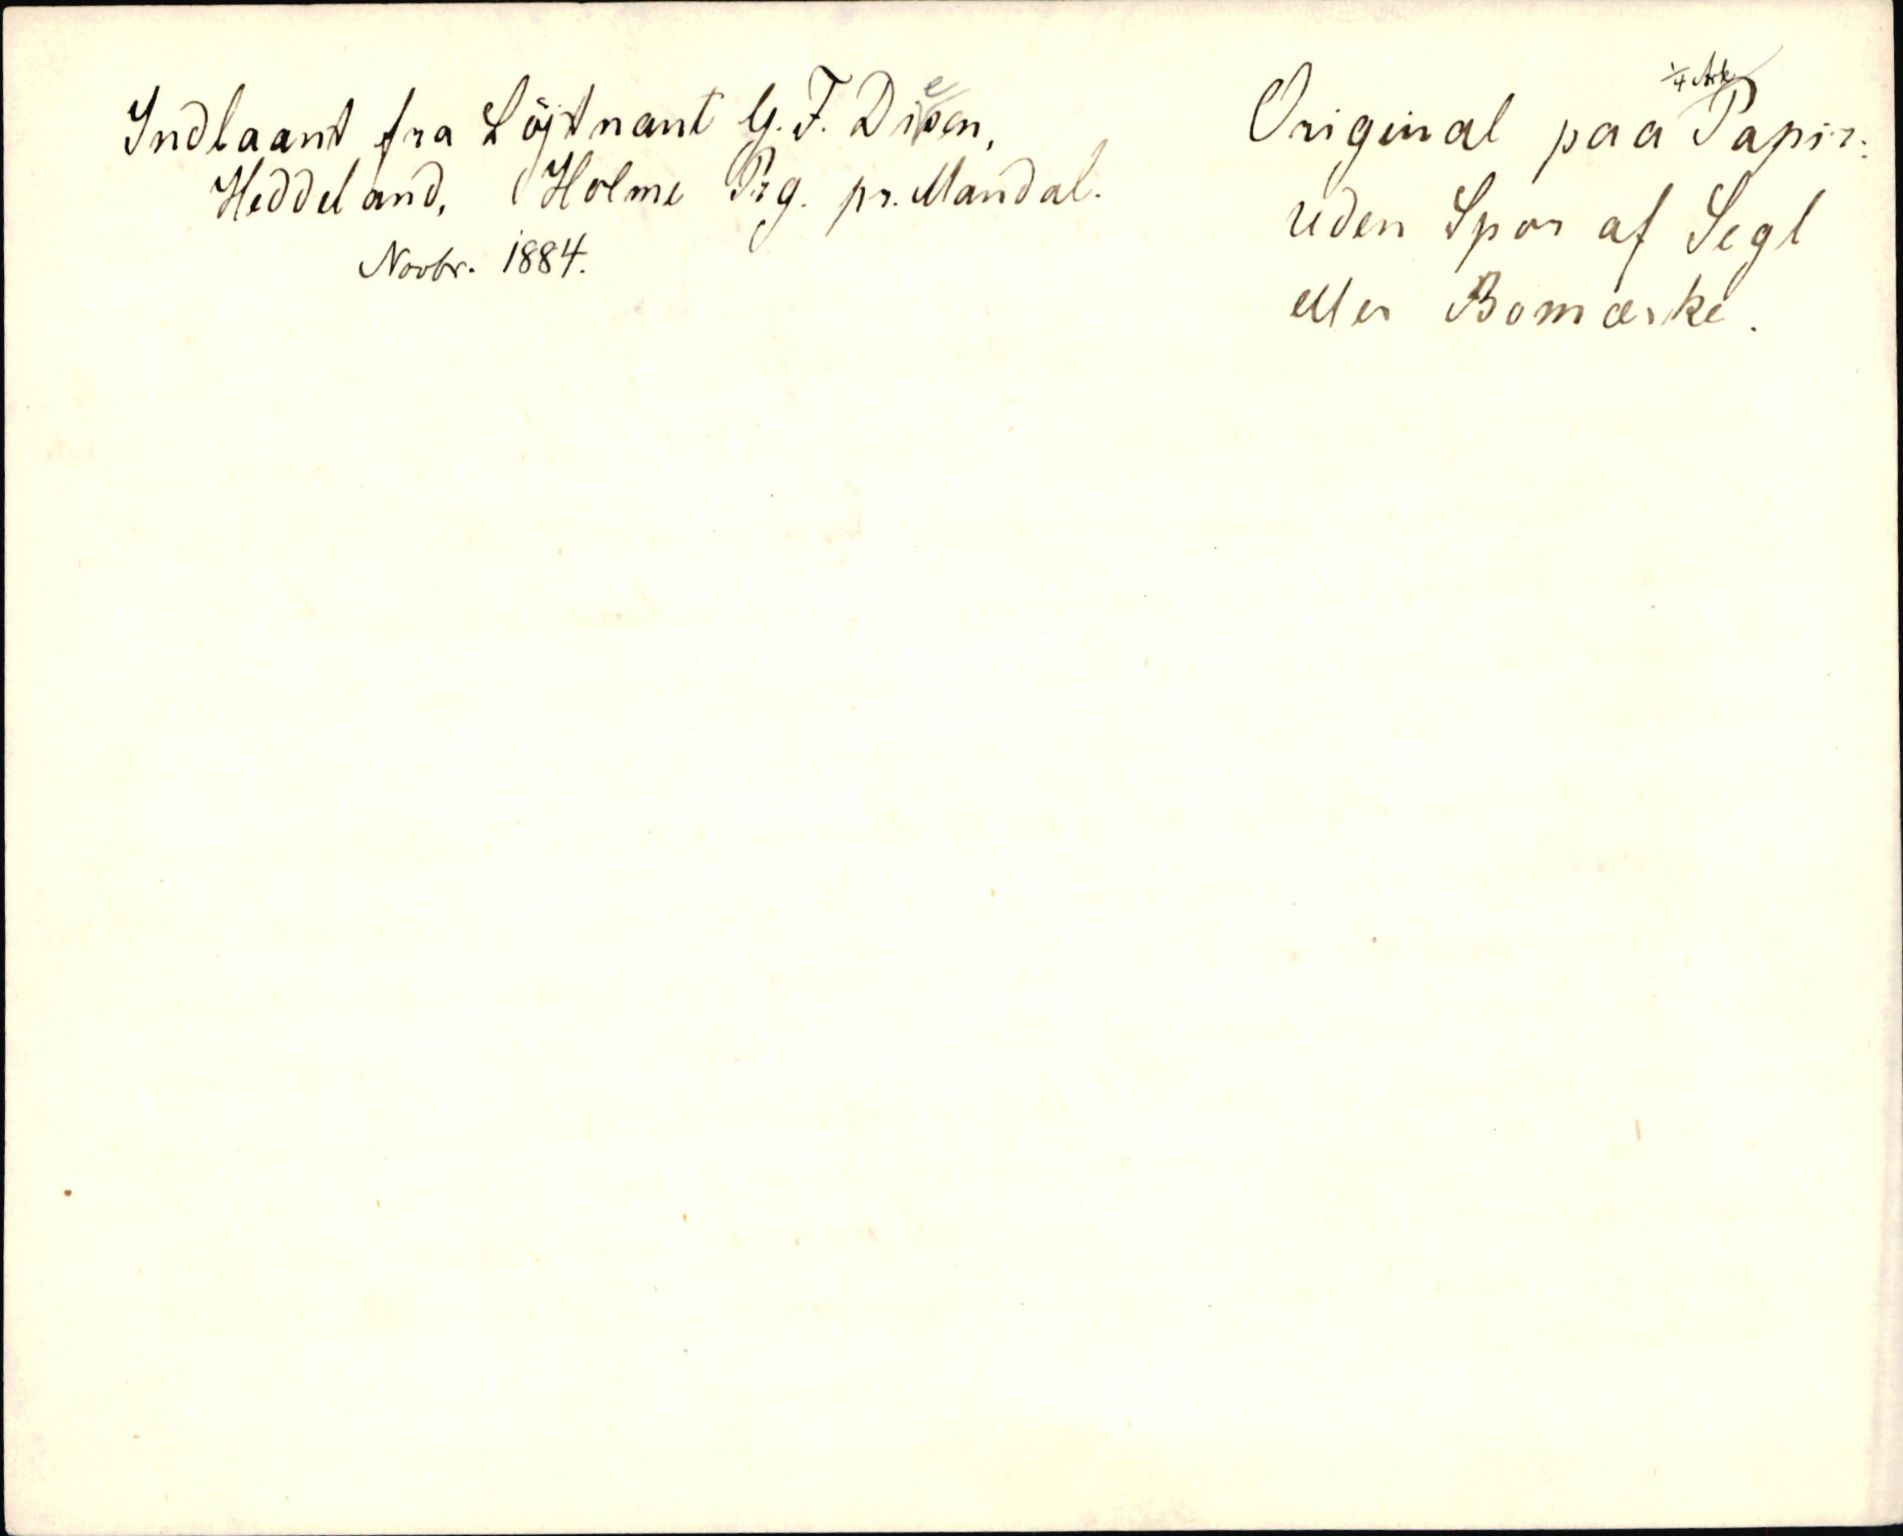 Indlaant fra Löjtnant G. F. Diesen,
Heddeland, Holme Prg. pr. Mandal.
Novbr. 1884.
1/4 Ark
Original paa Papir:
uden Spor af Segl
eller Bomærke.